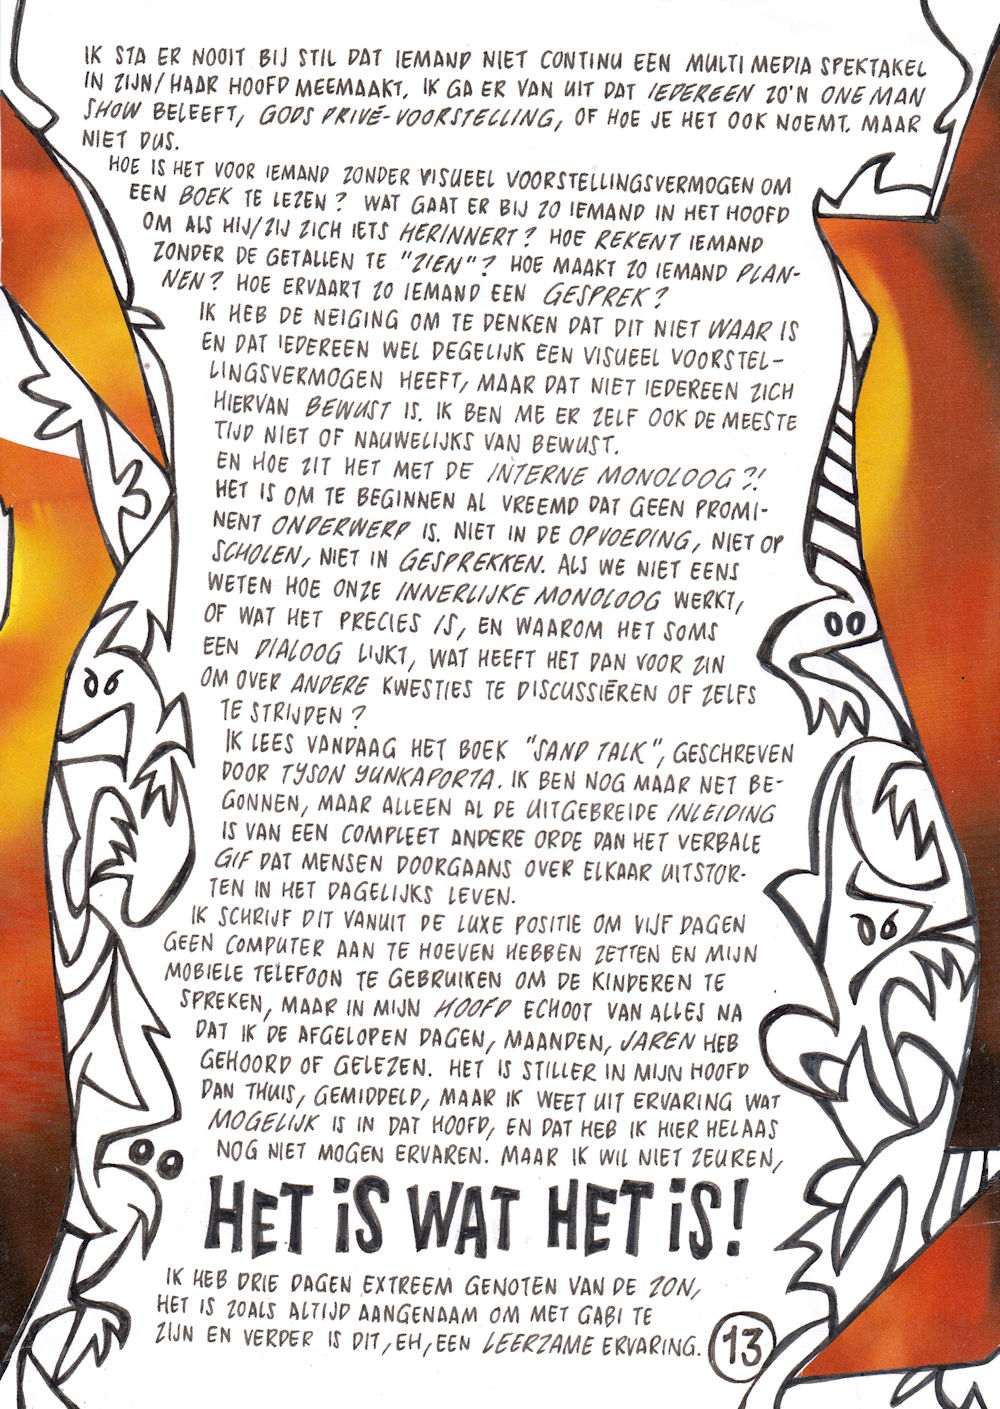 IK STA ER NOOIT BIJ STIL DAT IEMAND NIET CONTINU EEN MULTI MEDIA SPEKTAKEL
IN ZIJN/HAAR HOOFD MEEMAAKT, IK GA ER VAN UIT DAT IEDEREEN ZO'N ONE MAN
SHOW BELEEFT, GODS PRIVÉ-VOORSTELLING, OF HOE JE HET OOK NOEMT. MAAR
NIET DUS.
HOE IS HET VOOR IEMAND ZONDER VISUEEL VOORSTELLINGSVERMOGEN OM
EEN BOEK TE LEZEN? WAT GAAT ER BIJ ZO IEMAND IN HET HOOFD
OM ALS HIJ/ZIJ ZICH IETS HERINNERT? HOE REKENT IEMAND
ZONDER DE GETALLEN TE "ZIEN"? HOE MAAKT ZO IEMAND PLAN-
NEN? HOE ERVAART ZO IEMAND EEN GESPREK?
IK HEB DE NEIGING OM TE DENKEN DAT DIT NIET WAAR IS
EN DAT IEDEREEN WEL DEGELIJK EEN VISUEEL VOORSTEL-
LINGSVERMOGEN HEEFT, MAAR DAT NIET IEDEREEN ZICH
HIERVAN BEWUST IS. IK BEN ME ER ZELF OOK DE MEESTE
TIJD NIET OF NAUWELIJKS VAN BEWUST.
EN HOE ZIT HET MET DE INTERNE MONOLOOG?!
HET IS OM TE BEGINNEN AL VREEMD DAT GEEN PROMI-
NENT ONDERWERP IS. NIET IN DE OPVOEDING, NIET OP
SCHOLEN, NIET IN GESPREKKEN. ALS WE NIET EENS
WETEN HOE ONZE INNERLIJKE MONOLOOG WERKT,
OF WAT HET PRECIES IS, EN WAAROM HET SOMS
EEN DIALOOG LIJKT, WAT HEEFT HET DAN VOOR ZIN
OM OVER ANDERE KWESTIES TE DISCUSSIËREN OF ZELFS
TE STRIJDEN?
IK LEES VANDAAG HET BOEK "SAND TALK", GESCHREVEN
DOOR TYSON YUNKAPORTA. IK BEN NOG MAAR NET BE-
GONNEN, MAAR ALLEEN AL DE UITGEBREIDE INLEIDING
IS VAN EEN COMPLEET ANDERE ORDE DAN HET VERBALE
GIF DAT MENSEN DOORGAANS OVER ELKAAR UITSTOR-
TEN IN HET DAGELIJKS LEVEN.
IK SCHRIJF DIT VANUIT DE LUXE POSITIE OM VIJF DAGEN
GEEN COMPUTER AAN TE HOEVEN HEBBEN ZETTEN EN MIJN
MOBIELE TELEFOON TE GEBRUIKEN OM DE KINDEREN TE
SPREKEN, MAAR IN MIJN HOOFD ECHOOT VAN ALLES NA
DAT IK DE AFGELOPEN DAGEN, MAANDEN, JAREN HEB
GEHOORD OF GELEZEN. HET IS STILLER IN MIJN HOOFD
DAN THUIS, GEMIDDELD, MAAR IK WEET UIT ERVARING WAT
MOGELIJK IS IN DAT HOOFD, EN DAT HEB IK HIER HELAAS
NOG NIET MOGEN ERVAREN. MAAR IK WIL NIET ZEUREN,
HET IS WAT HET IS!
IK HEB DRIE DAGEN EXTREEM GENOTEN VAN DE ZON,
HET IS ZOALS ALTIJD AANGENAAM OM MET GABI TE
ZIJN EN VERDER IS DIT, EH, EEN LEERZAME ERVARING.
13